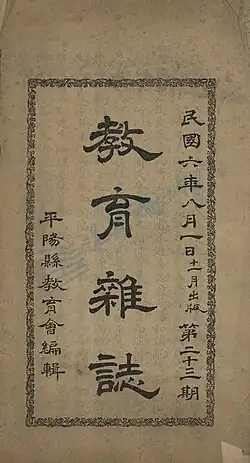 民國六年八月一日十一月出版 第二十三期
教育雜誌
平陽縣教育會編輯